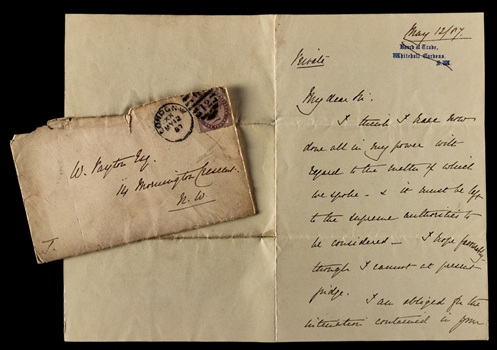 May 12/87
Board of Trade,
Whitehall Gardens.
S.W.
Private
My dear Sir.
I think I have now
done all in my power with
regard to the matter of which
we spoke - & it must be left
to the supreme authorities to
be considered - I hope favourably
though I cannot at present
judge. I am obliged for the
intimation contained in your
LONDON·W
MY 12
87
W. Payton Esq.
14 Mornington Crescent.
N.W
J.